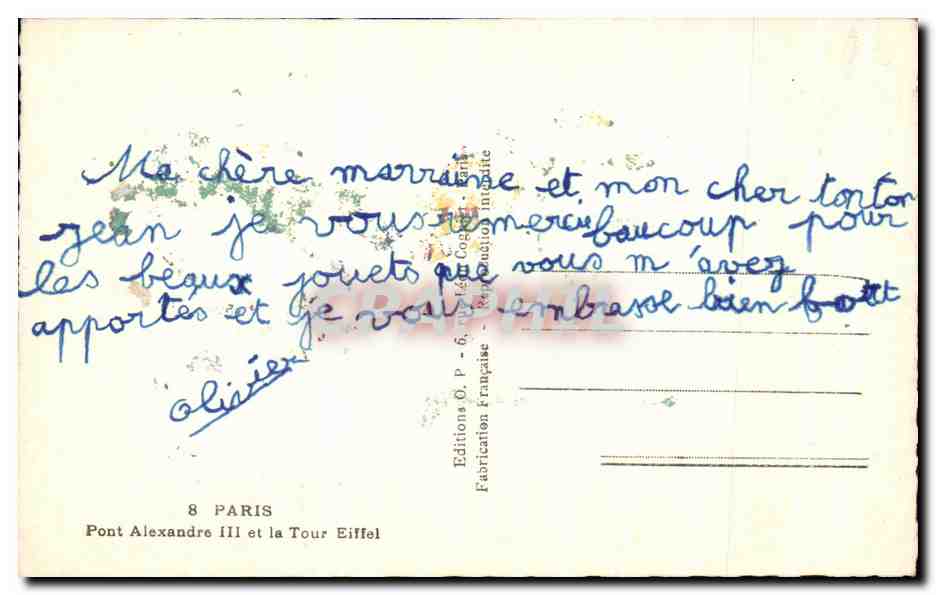 Ma chère marraine et mon cher tonton
jean je vous remercie baucoup pour
les beaux jouets que vous m'avez
apportés et je vous embrasse bien fort
olivier
8 PARIS
Pont Alexandre III et la Tour Eiffel
Editions O. P - 6, rue Léon Cogniet - Paris
Fabrication Française - Reproduction interdite